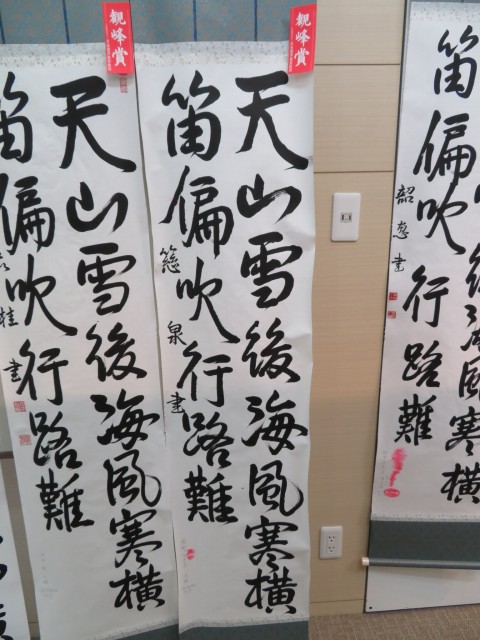 観峰賞
天山雪後海風寒横
笛偏吹行路難
慈泉書
観峰賞
天山雪後海風寒横
笛偏吹行路難
桂書
後海風寒横
笛偏吹行路難
韶恵書